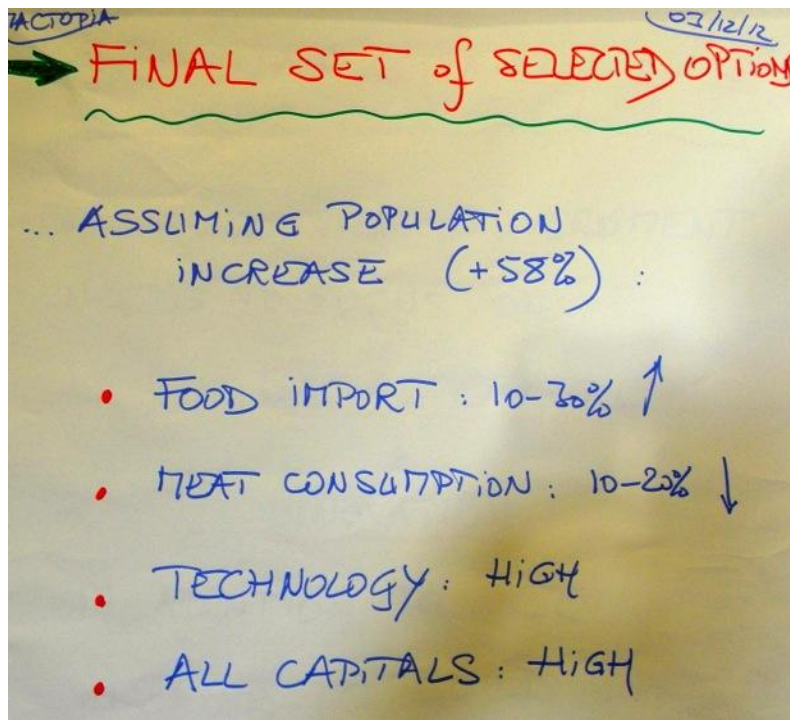 03/12/12
FiNAL SET of SELECTED OPTiON
... ASSUMiNG POPULATiON
iNCREASE (+58%) :
• FOOD iMPORT : 10-30% ↑
• MEAT CONSUMPTiON : 10-20% ↓
• TECHNOLOGY : HiGH
• ALL CAPiTALS : HiGH